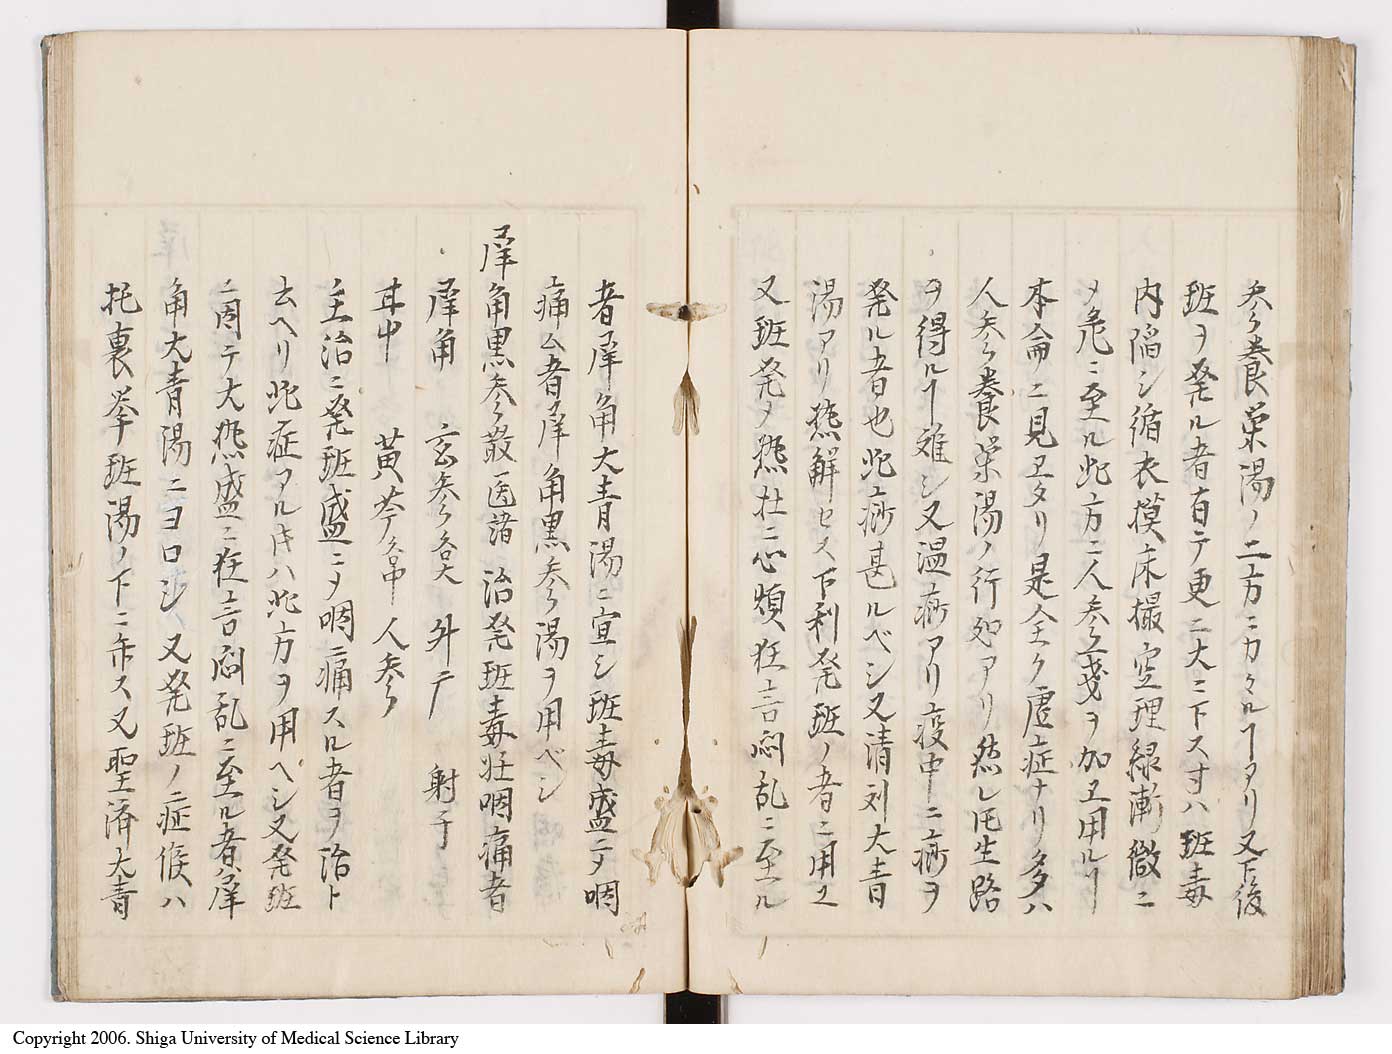 参養栄湯ノ二方ニカヽルヿアリ又下後
班ヲ発ル者有テ更ニ大ニ下ス寸ハ班毒
内陥シ循衣摸床撮空理線漸微ニ
〆危ニ至ル此方ニ人参三戔ヲ加ヱ用ルヿ
本侖ニ見ヱタリ是全ク虚症ナリ多ハ
人参養栄湯ノ行処アリ然レ𪜈生路
ヲ得ルヿ難シ又温痧アリ疫中ニ痧ヲ
発ル者也此痧甚ルベシ又清刘大青
湯アリ熱解セス下利発班ノ者ニ用ユ
又班発〆熱壮ニ心煩狂言悶乱ニ至ル
者犀角大青湯ニ宣シ班毒盛ニ〆咽
痛ム者犀角黒参湯ヲ用ベシ
犀角黒参散 医諸 治発班毒狂咽痛者
犀角 玄参各大 舛广 射干
甘中 黄芩各中 人参
主治ニ発班盛ニ〆咽痛スル者ヲ治ト
云ヘリ此症アル𪜈ハ此方ヲ用ヘシ又発班
ニ因テ大熱盛ニ狂言悶乱ニ至ル者ハ犀
角大青湯ニヨロシ又発班ノ症候ハ
托裏挙班湯ノ下ニ弁ス又聖済大青
Copyright 2006. Shiga University of Medical Science Library